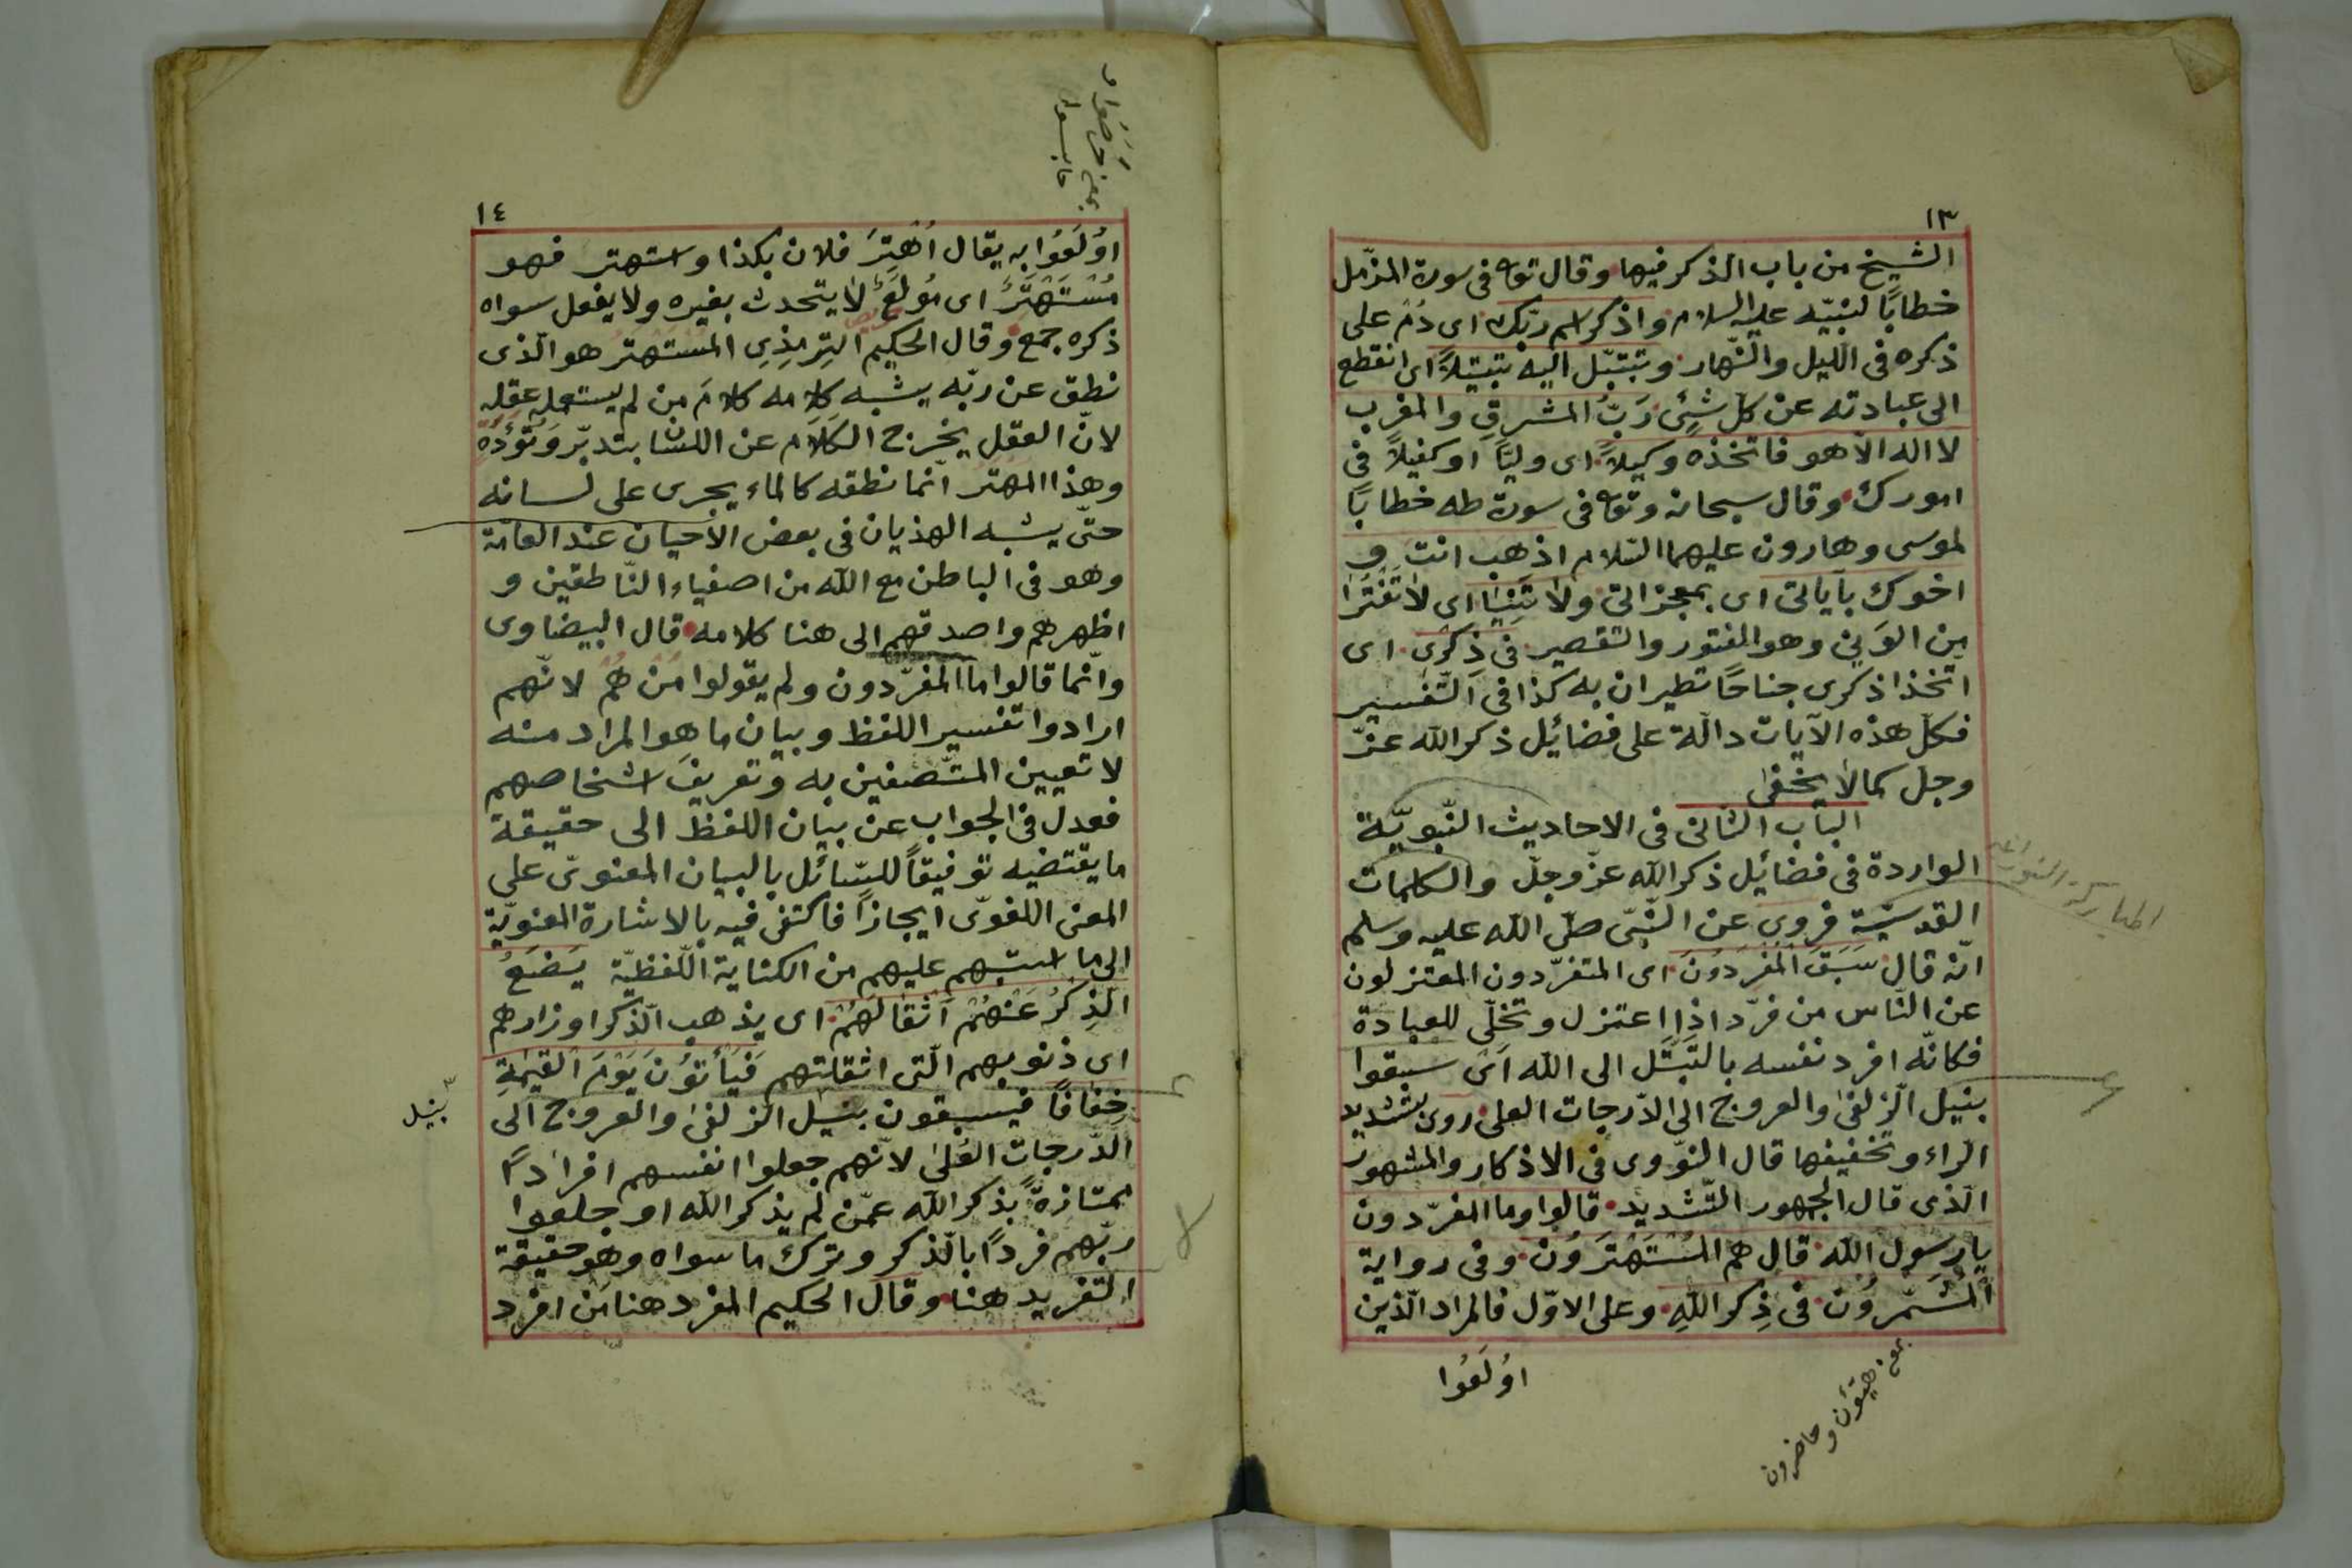 ١٣
الشيخ من باب الذكر فيها وقال تع في سورة المزّمل
خطابًا لنبيّه عليه السلام واذكر اسم ربّك اى دُمْ على
ذكره في اللّيل والنّهار وتبتّل اليه تبتيلاً اى انقطع
الى عبادته عن كلّ شئ رَبّ المشرقِ والمغرب
لا اله الاّ هو فاتّخذه وكيلاً اى وليّاً او كفيلاً فى
امورك وقال سبحانه وتع فى سورة طه خطابًا
لموسى وهارون عليهما السّلام اذهب انتَ و
اخوك بآياتى اى بمعجزاتى ولا تَنِيَا اى لا تَفْتُرَا
من الوَنِىِ وهو الفتور والتقصير فى ذِكرى اى
اتّخذا ذكرى جناحًا تطيران به كذا فى التّفسير
فكلّ هذه الآيات دالّة على فضائيل ذكر الله عزّ
وجلّ كما لا يخفى
الباب الثانى فى الاحاديث النّبويّة
الواردة فى فضائيل ذكر الله عزّ وجلّ والكلمات
القدسيّة فروى عن النّبىّ صلّى الله عليه وسلم
انّه قال سَبَقَ المُفَرِّدُونَ اى المتفرّدون المعتزلون
عن النّاس من فرّد اذا اعتزل وتخلّى للعبادة
فكانّه افرد نفسه بالتَّبَتُّل الى الله اَىْ سبقوا
بنيل الزلفى والعروج الى الدّرجات العلى روى بتشديد
الرّاء وتخفيفها قال النّووى فى الاذكار والمشهور
الّذى قال الجمهور التّشديد قالوا وما المفرّدون
يا رسول الله قال هم المُسْتَهْتَرُون وفى رواية
اَلْمُشَمِّرُون فى ذِكرِ اللهِ وعلى الاوّل فالمراد الّذين
اوُلَعُوا
بمعنى مهيّؤن وحاضرون
المباركة
١٤
اوُلَعُوا به يقال اُهْتِرَ فلان بكذا واستهتر فهو
مُسْتَهْتَرٌ اى مُولَعٌ لا يتحدث بغيره ولا يفعل سواه
ذكره جمع وقال الحكيم التِرمِذِىِ المُسْتَهتَرُ هو الّذى
نطق عن ربّه يشبه كلامه كلامَ من لم يستعمله عقله
لانّ العقل يخرج الكلام عن اللسان بتدبّر وَتُؤَدَةٍ
وهذا المهتَرُ انّما نطقه كالماء يجرى على لسانه
حتّى يشبه الهذيان فى بعض الاحيان عند العامّة
وهو فى الباطن مع الله من اصفياء النّاطقين و
اظهرهم واصدقهم الى هنا كلامه قال البيضاوى
وانّما قالوا ما المفرّدون ولم يقولوا مَنْ هُمْ لانّهم
ارادوا تفسير اللفظ وبيان ما هو المراد منه
لا تعيين المتّصفين به وتعريف اشخاصهم
فعدل فى الجواب عن بيان اللفظ الى حقيقة
ما يقتضيه توفيقاً للسّائل بالبيان المعنوىّ على
المعنى اللغوىّ ايجازاً فاكتفى فيه بالاشارة المعنويّة
الى ما استبهم عليهم من الكناية اللّفظيّة يَضَعُ
الذِّكرُ عَنْهُمْ اَثْقَالَهُمْ اى يذهب الّذكر اوزارهم
اى ذنوبهم الّتى اثقلتهم فَيَأتُونَ يَوْمَ القِيمَةِ
خِفَافًا فيسبقون بنيل الزلفى والعروج الى
الدّرجات العُلىٰ لانّهم جعلوا انفسهم افرادًا
ممتازةً بذكر الله عمّن لم يذكر الله او جعلوا
ربّهم فردًا بالّذكر وترك ما سواه وهو حقيقة
التفريد هنا وقال الحكيم المفرد هنا مَن افرد
بنيل